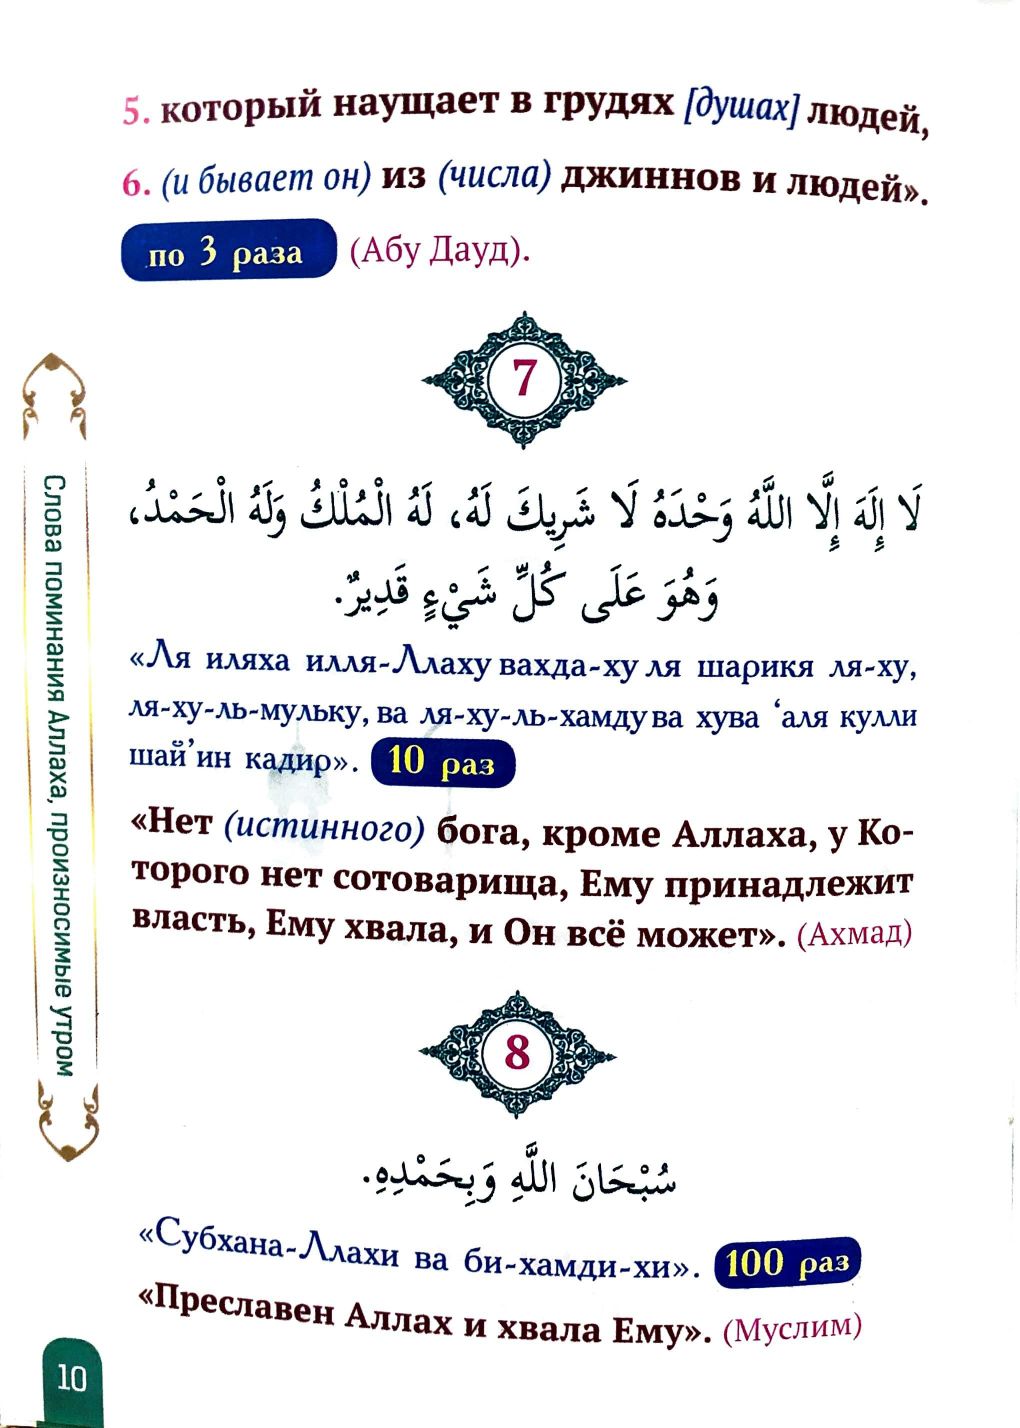 5. который наущает в грудях [душах] людей,
6. (и бывает он) из (числа) джиннов и людей».
по 3 раза (Абу Дауд).
7
لَا إِلَهَ إِلَّا اللَّهُ وَحْدَهُ لَا شَرِيكَ لَهُ، لَهُ الْمُلْكُ وَلَهُ الْحَمْدُ،
وَهُوَ عَلَى كُلِّ شَيْءٍ قَدِيرٌ.
«Ля иляха илля-Ллаху вахда-ху ля шарикя ля-ху,
ля-ху-ль-мульку, ва ля-ху-ль-хамду ва хува ‘аля кулли
шай’ин кадир». 10 раз
«Нет (истинного) бога, кроме Аллаха, у Ко-
торого нет сотоварища, Ему принадлежит
власть, Ему хвала, и Он всё может». (Ахмад)
8
سُبْحَانَ اللَّهِ وَبِحَمْدِهِ.
«Субхана-Ллахи ва би-хамди-хи». 100 раз
«Преславен Аллах и хвала Ему». (Муслим)
Слова поминания Аллаха, произносимые утром
10